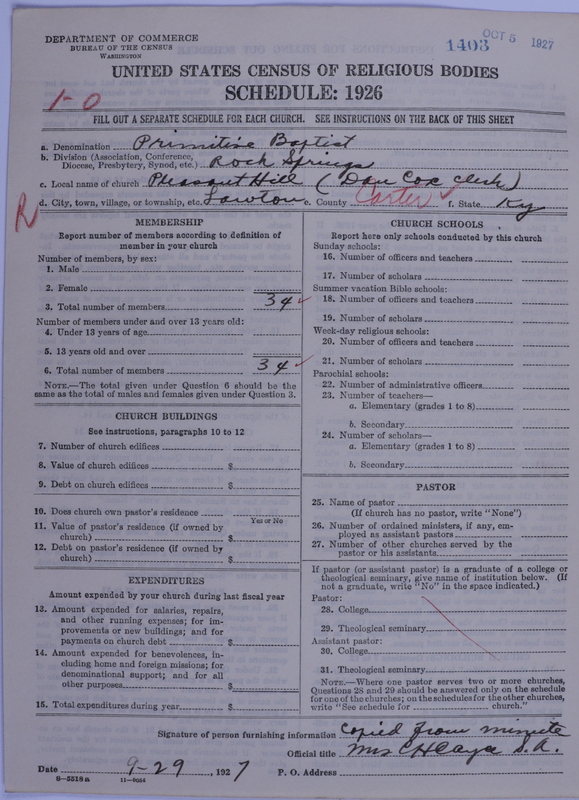 DEPARTMENT OF COMMERCE
BUREAU OF THE CENSUS
WASHINGTON
1403 OCT 5 1927
UNITED STATES CENSUS OF RELIGIOUS BODIES
SCHEDULE: 1926
1-0
FILL OUT A SEPARATE SCHEDULE FOR EACH CHURCH. SEE INSTRUCTIONS ON THE BACK OF THIS SHEET
a. Denomination Primitive Baptist
b. Division (Association, Conference, Diocese, Presbytery, Synod, etc.) Rock Springs
c. Local name of church Pleasant Hill (Dan Cox Clerk)
R d. City, town, village, or township, etc. Lawton e. County Carter f. State Ky
MEMBERSHIP
Report number of members according to definition of
member in your church
Number of members, by sex:
1. Male
2. Female
3. Total number of members 34
Number of members under and over 13 years old:
4. Under 13 years of age
5. 13 years old and over
6. Total number of members 34
NOTE.—The total given under Question 6 should be the
same as the total of males and females given under Question 3.
CHURCH BUILDINGS
See instructions, paragraphs 10 to 12
7. Number of church edifices
8. Value of church edifices $
9. Debt on church edifices $
10. Does church own pastor's residence?
Yes or No
11. Value of pastor's residence (if owned by
church) $
12. Debt on pastor's residence (if owned by
church) $
EXPENDITURES
Amount expended by your church during last fiscal year
13. Amount expended for salaries, repairs,
and other running expenses; for im-
provements or new buildings; and for
payments on church debt $
14. Amount expended for benevolences, in-
cluding home and foreign missions; for
denominational support; and for all
other purposes $
15. Total expenditures during year $
CHURCH SCHOOLS
Report here only schools conducted by this church
Sunday schools:
16. Number of officers and teachers
17. Number of scholars
Summer vacation Bible schools:
18. Number of officers and teachers
19. Number of scholars
Week-day religious schools:
20. Number of officers and teachers
21. Number of scholars
Parochial schools:
22. Number of administrative officers
23. Number of teachers—
a. Elementary (grades 1 to 8)
b. Secondary
24. Number of scholars—
a. Elementary (grades 1 to 8)
b. Secondary
PASTOR
25. Name of pastor
(If church has no pastor, write "None")
26. Number of ordained ministers, if any, em-
ployed as assistant pastors
27. Number of other churches served by the
pastor or his assistants
If pastor (or assistant pastor) is a graduate of a college or
theological seminary, give name of institution below. (If
not a graduate, write "No" in the space indicated.)
Pastor:
28. College
29. Theological seminary
Assistant pastor:
30. College
31. Theological seminary
NOTE.—Where one pastor serves two or more churches,
Questions 28 and 29 should be answered only on the schedule
for one of the churches; on the schedules for the other churches,
write "See schedule for church."
Signature of person furnishing information Copied from minute
Official title Mrs C H S.A.
Date 9-29, 1927 P. O. Address
8-5518a 11-9004